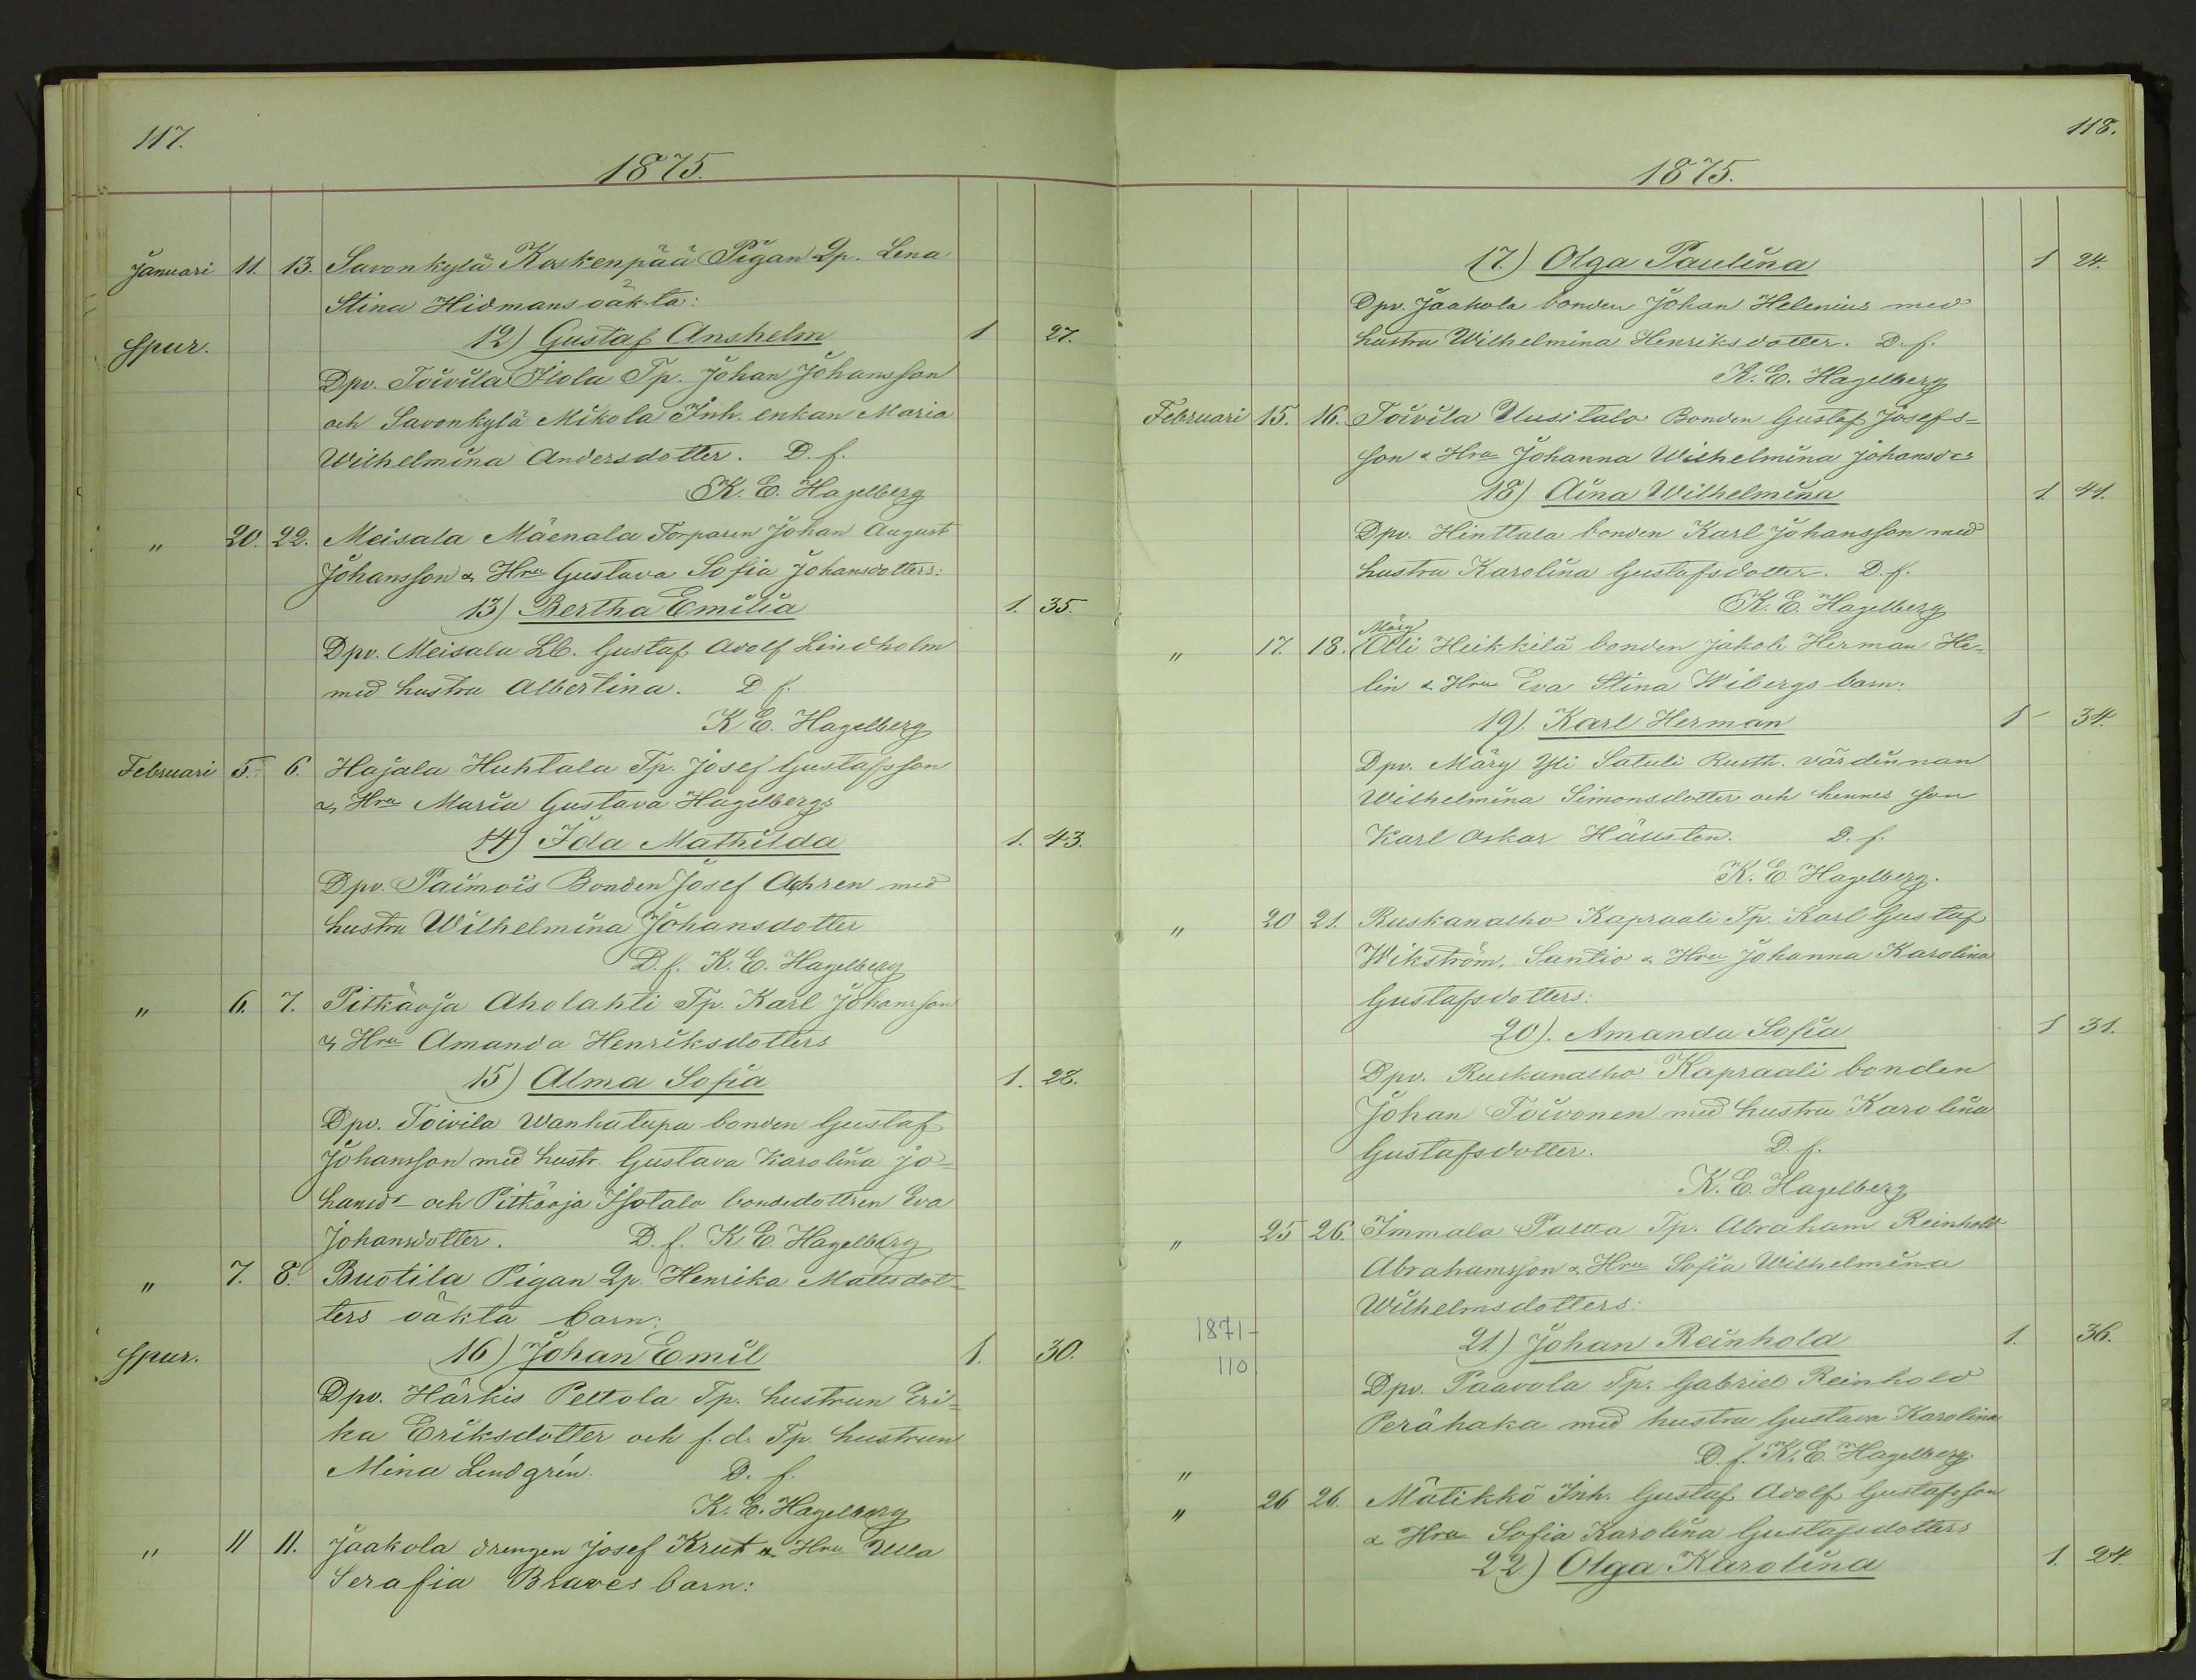 117.
1875.
Januari 11. 13. Savonkylä Koskenpää Pigan Qp. Lena
Stina Hidmans oäkta:
Spur. 12) Gustaf Anshelm 1 27.
Dpv. Toivila Ilola Tp. Johan Johansson
och Savonkylä Mikola Inh. enkan Maria
Wilhelmina Andersdotter. D. f.
K. E. Hagelberg
" 20. 22. Meisala Mäenala Torparen Johan August
Johansson & Hru Gustava Sofia Johansdotters:
13) Bertha Emilia 1. 35.
Dpv. Meisala Lb. Gustaf Adolf Lindholm
med hustru Albertina. D. f.
K E. Hagelberg
Februari 5. 6. Hajala Huhtala Tp. Josef Gustafsson
& Hru Maria Gustava Hagelbergs
14) Ida Mathilda 1. 43.
Dpv. Paimois Bonden Josef Achren med
hustru Wilhelmina Johansdotter
D. f. K. E. Hagelberg
" 6. 7. Pitkäoja Aholahti Tp. Karl Johansson
& Hru Amanda Henriksdotters
15) Alma Sofia 1. 28.
Dpv. Toivila Wanhatupa bonden Gustaf
Johansson med hustr. Gustava Karolina Jo-
hansdr och Pitkäoja Isotalo bondedottren Eva
Johansdotter. D. f. K E. Hagelberg
" 7. 8. Buotila Pigan Qp. Henrika Mattsdot-
ters oäkta barn:
Spur. 16) Johan Emil 1. 30.
Dpv. Härkis Peltola Tp. hustrun Eri-
ka Eriksdotter och f. d. Tp. hustrun
Mina Lindgrén. D. f.
K. E. Hagelberg
" 11 11. Jaakola drengen Josef Krut & Hru Ulla
Serafia Braxes barn:
118.
1875.
17.) Olga Paulina 1 24.
Dpv. Jaakola bonden Johan Helenius med
hustru Wilhelmina Henriksdotter. D. f.
K. E. Hagelberg
Februari 15. 16. Toivila Uusitalo Bonden Gustaf Josefs-
son & Hru Johanna Wilhelmina Johansdrs
18) Aina Wilhelmina 1. 41.
Dpv. Hinttala bonden Karl Johansson med
hustru Karolina Gustafsdotter. D. f.
K. E. Hagelberg
Märy
" 17. 18. Ali Heikkilä bonden Jakob Herman He-
lin & Hru Eva Stina Wibergs barn:
19). Karl Herman 1 34.
Dpv. Märy Yli Satuli Rusth. värdinnan
Wilhelmina Simonsdotter och hennes son
Karl Oskar Häusten. D. f.
K. E. Hagelberg.
" 20 21. Ruskanalho Kapraali Tp. Karl Gustaf
Wikström, Santio & Hru Johanna Karolina
Gustafsdotters:
20). Amanda Sofia 1 31.
Dpv. Ruskanalho Kapraali bonden
Johan Toivonen med hustru Karolina
Gustafsdotter. D. f.
K. E. Hagelberg
" 25 26. Immala Paltta Tp. Abraham Reinhold
Abrahamsson & Hru Sofia Wilhelmina
Wilhelmsdotters:
1871- 21.) Johan Reinhold 1. 36.
110
Dpv. Paavola Tp. Gabriel Reinhold
Perähaka med hustru Gustava Karolina
" D. f. K. E. Hagelberg.
" 26 26. Mätikkö Inh. Gustaf Adolf Gustafsson
& Hru Sofia Karolina Gustafsdotters
22) Olga Karolina 1. 24.